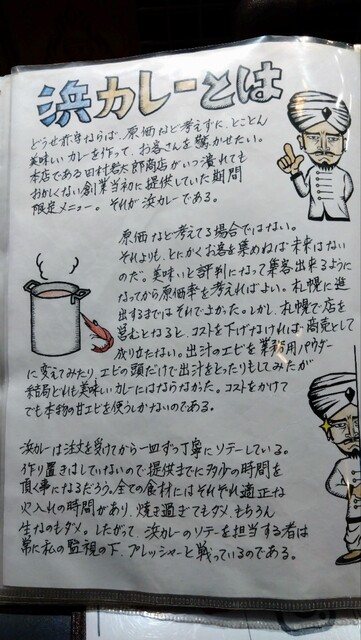 浜カレーとは
どうせ赤字ならば、原価など考えずに、とことん
美味いカレーを作って、お客さんを驚かせたい。
本店である田村岩太郎商店がいつ潰れても
おかしくない創業当初に提供していた期間
限定メニュー。それが浜カレーである。
原価など考てる場合ではない。
それよりも、とにかくお客を集めねば未来はない
のだ。美味いと評判になって集客出来るように
なってから原価率を考えればよい。札幌に進
出するまではそれでよかった。しかし、札幌で店を
営むとなると、コストを下げなければ商売として
成り立たない。出汁のエビを業務用パウダー
に変えてみたり、エビの頭だけで出汁をとったりもしてみたが
結局どれも美味いカレーにはならなかった。コストをかけて
でも本物の甘エビを使うしかないのである。
浜カレーは注文を受けてから一皿ずつ丁寧にソテーしている。
作り置きはしていないので提供までに多少の時間を
頂く事になるだろう。全ての食材にはそれぞれ適正な
火入れの時間があり、焼き過ぎてもダメ、もちろん
生なのもダメ。したがって、浜カレーのソテーを担当する者は
常に私の監視の下、プレッシャーと戦っているのである。